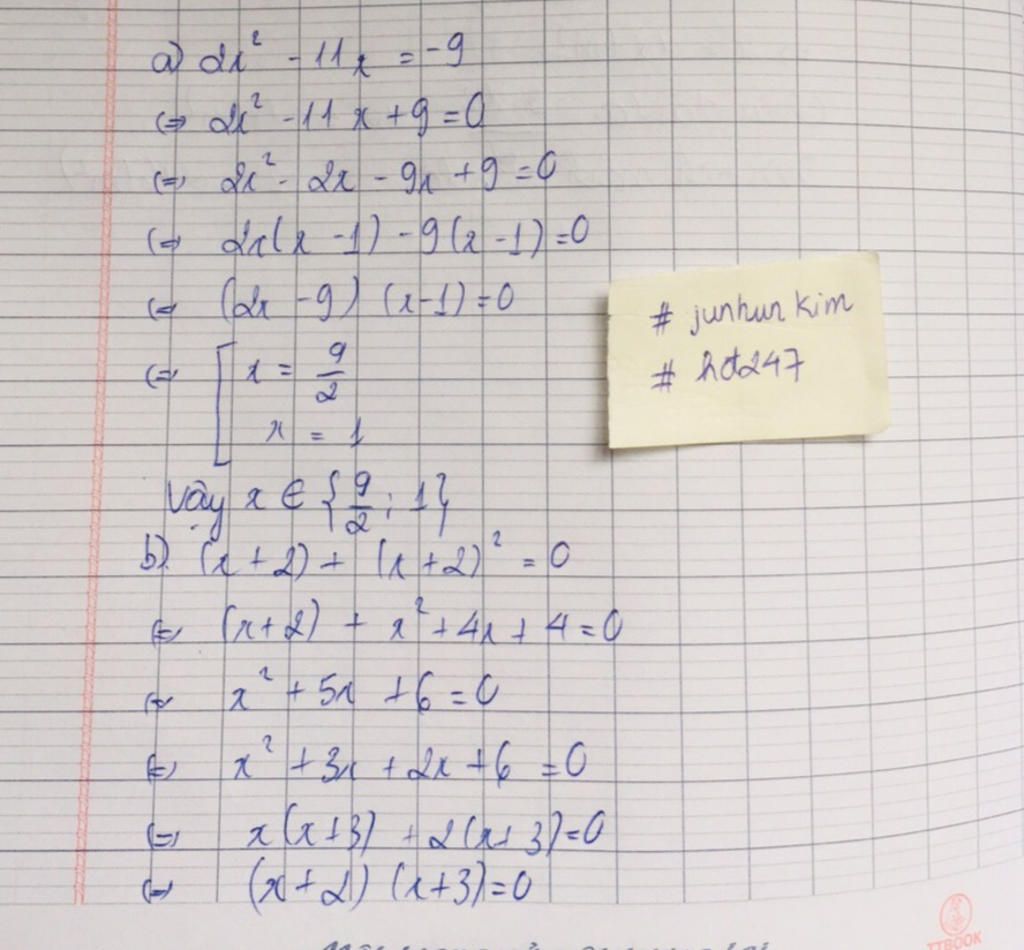 a) 2x² - 11x = -9
⇔ 2x² - 11x + 9 = 0
⇔ 2x² - 2x - 9x + 9 = 0
⇔ 2x(x - 1) - 9(x - 1) = 0
⇔ (2x - 9) (x - 1) = 0
⇔ [ x = 9/2
x = 1
Vậy x ∈ {9/2; 1}
b) (x + 2) + (x + 2)² = 0
⇔ (x + 2) + x² + 4x + 4 = 0
⇔ x² + 5x + 6 = 0
⇔ x² + 3x + 2x + 6 = 0
⇔ x(x + 3) + 2(x + 3) = 0
⇔ (x + 2) (x + 3) = 0
# junhun kim
# hd247
TTBOOK